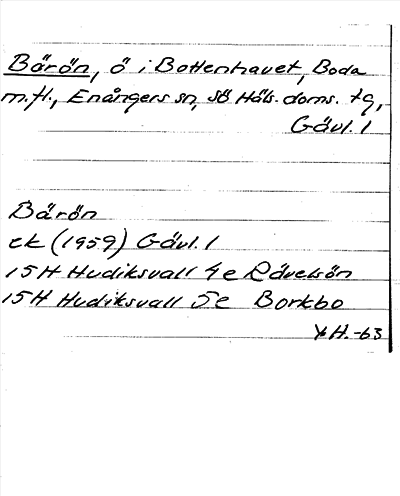 Bärön, ö i Bottenhavet, Boda
m.fl., Enångers sn, SÖ Häls. doms. tg,
Gävl. l
Bärön
ek (1959) Gävl. l
15H Hudiksvall 4e Rävelsön
15H Hudiksvall 5e Borkbo
H.-63